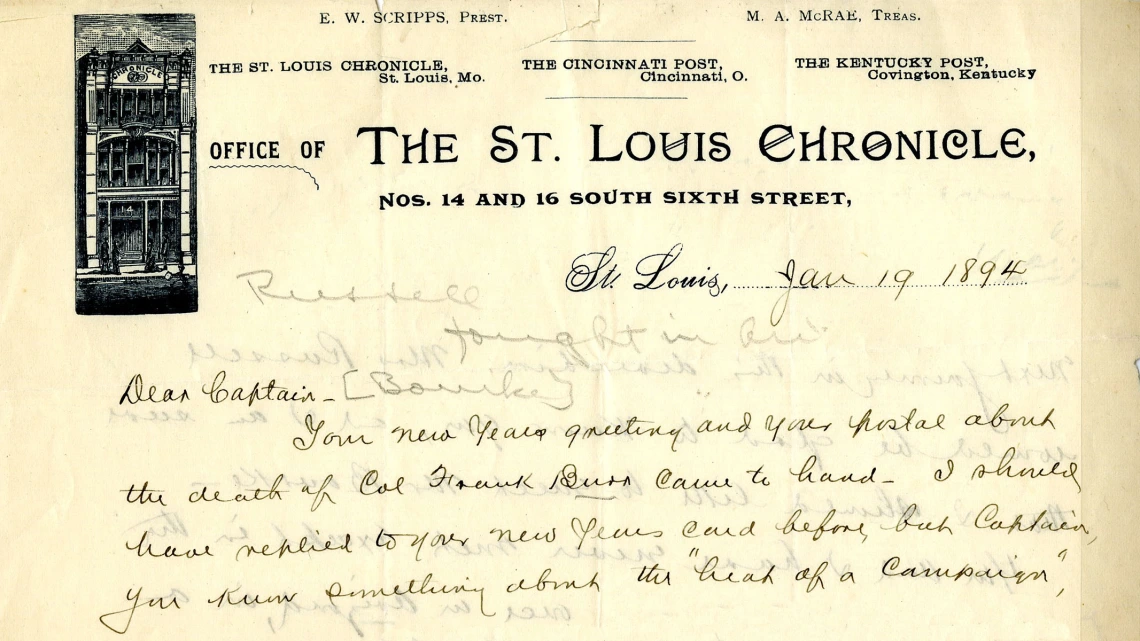 E. W. SCRIPPS, PREST.
M. A. MCRAE, TREAS.
THE ST. LOUIS CHRONICLE,
St. Louis, Mo.
THE CINCINNATI POST,
Cincinnati, O.
THE KENTUCKY POST,
Covington, Kentucky
CHRONICLE
14
OFFICE OF THE ST. LOUIS CHRONICLE,
NOS. 14 AND 16 SOUTH SIXTH STREET,
St. Louis, Jan 19 1894
Russell
fought in
Dear Captain - [Bourke]
Your new Years greeting and your postal about
the death of Col Frank Burr came to hand - I should
have replied to your new Years card before, but Captain,
you know something about the "heat of a campaign",